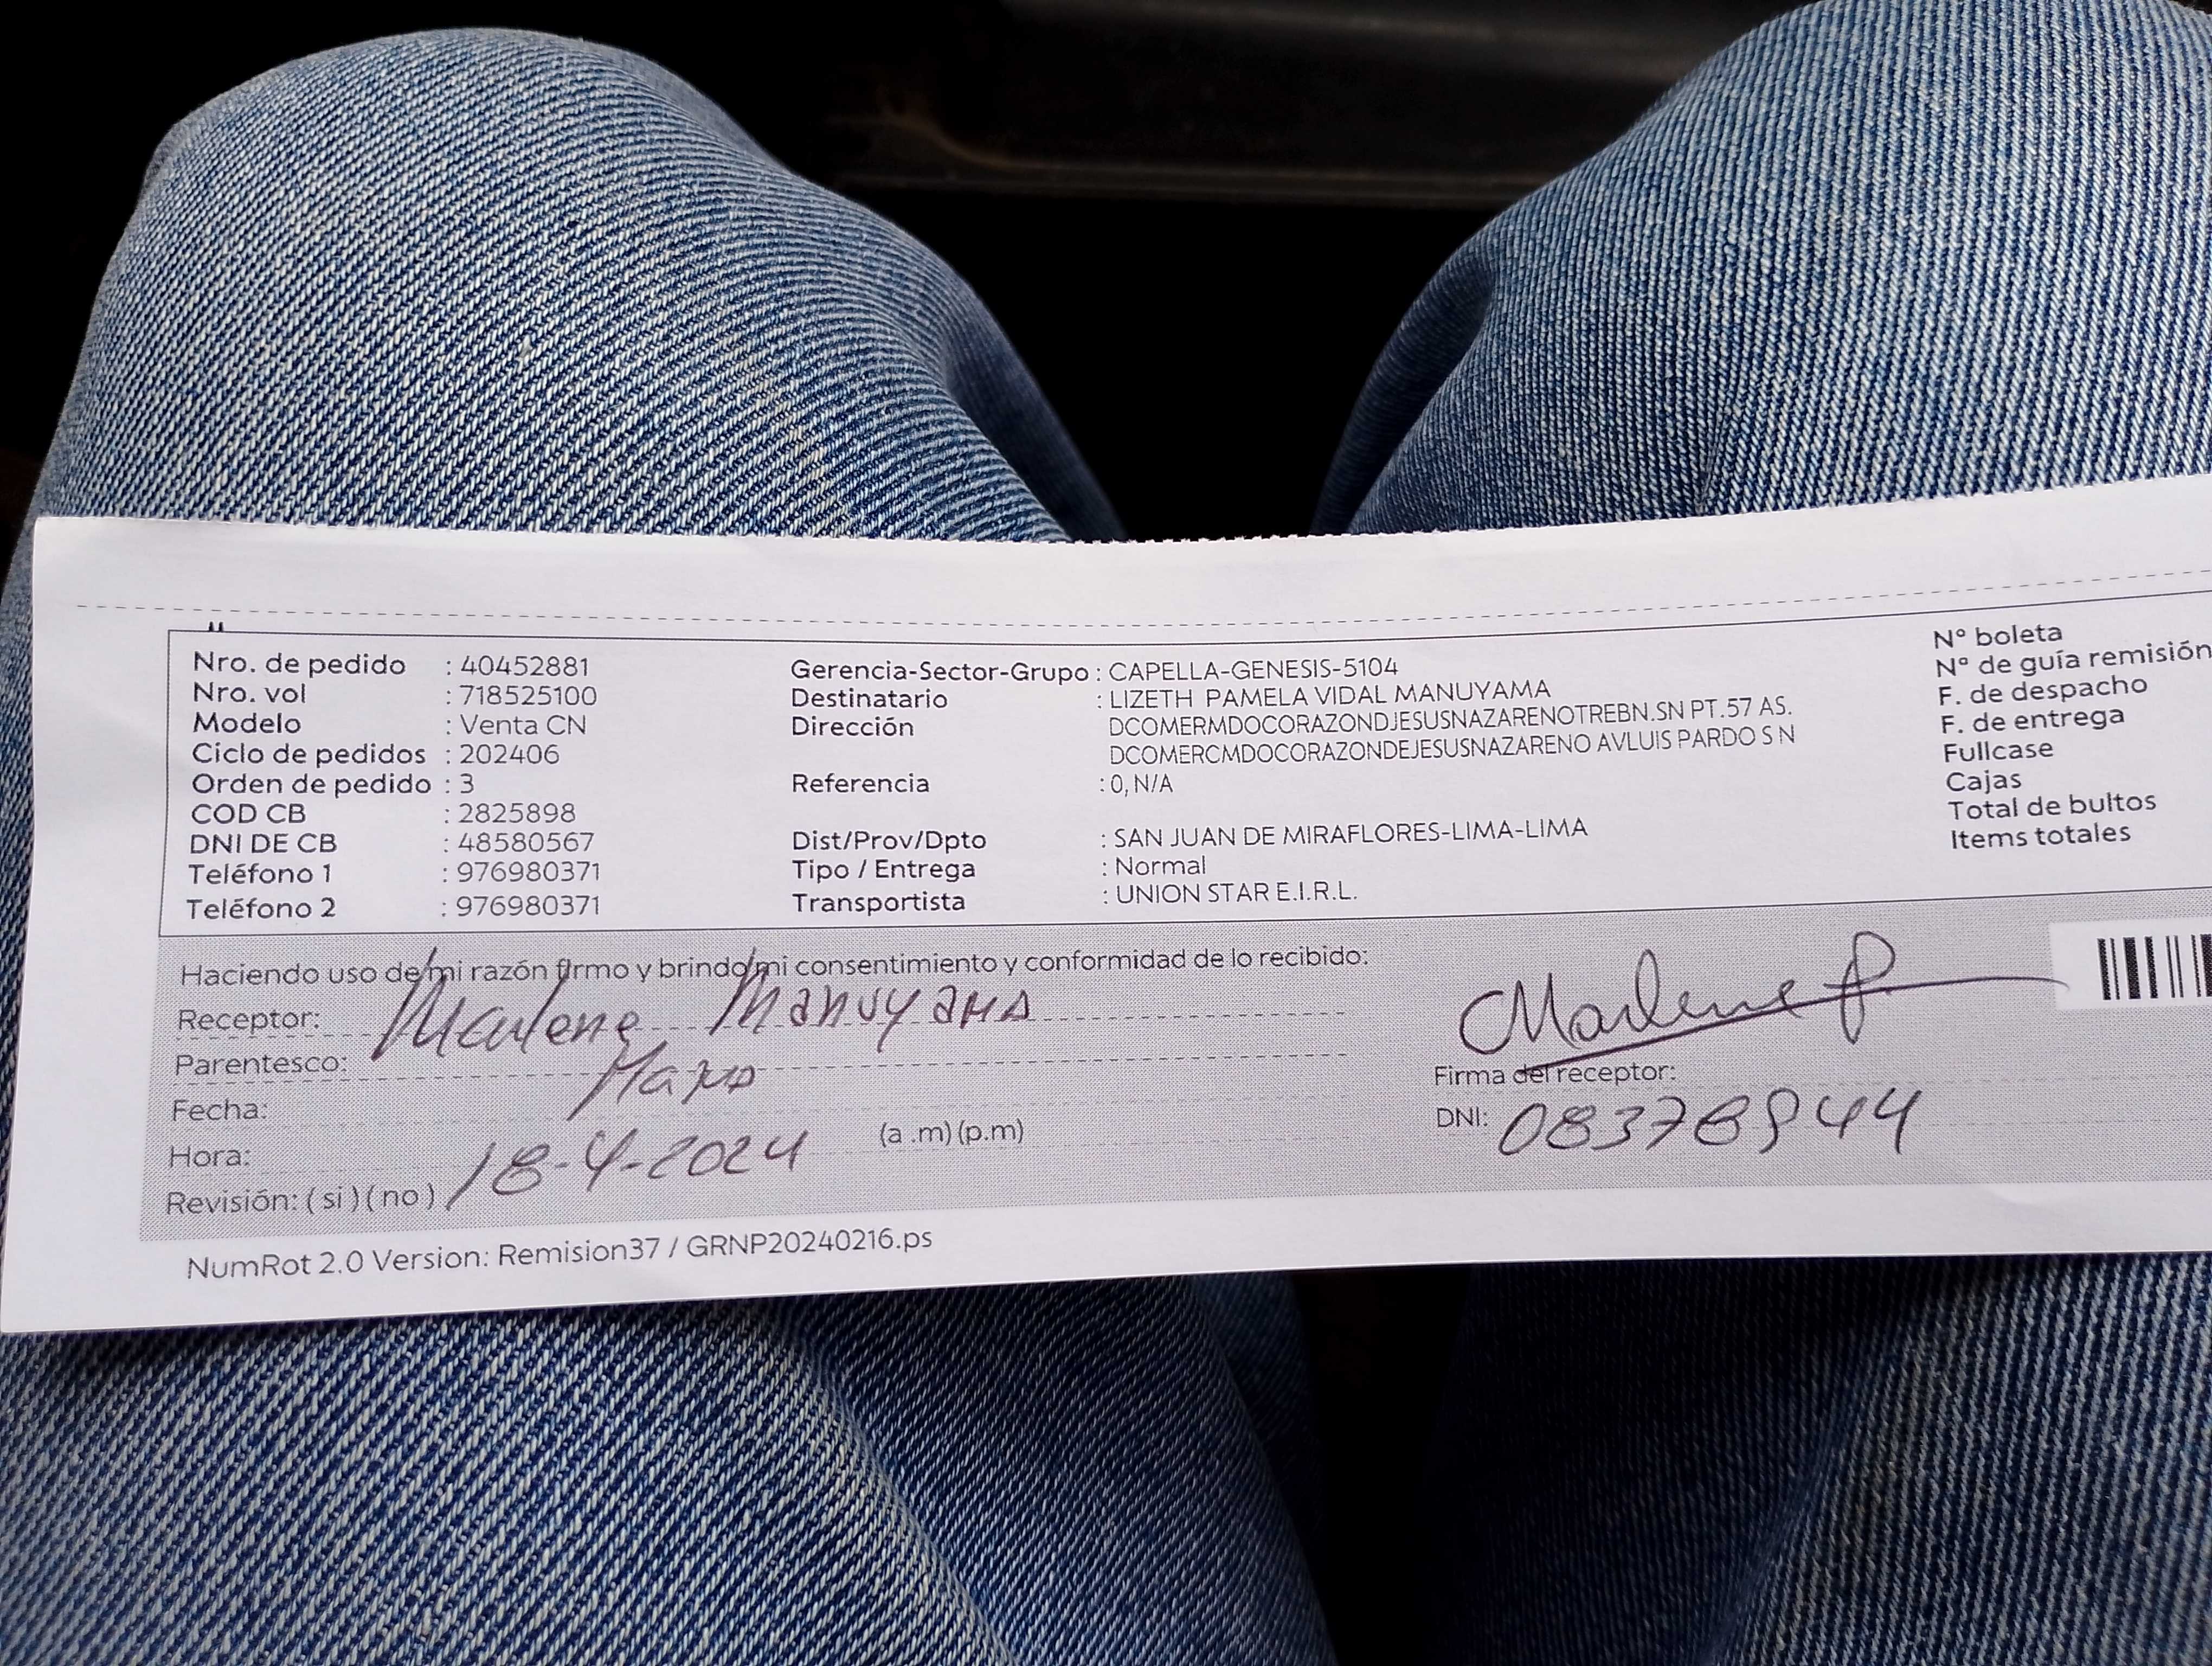 Nro. de pedido : 40452881
Nro. vol : 718525100
Modelo : Venta CN
Ciclo de pedidos : 202406
Orden de pedido : 3
COD CB : 2825898
DNI DE CB : 48580567
Teléfono 1 : 976980371
Teléfono 2 : 976980371
Gerencia-Sector-Grupo : CAPELLA-GENESIS-5104
Destinatario : LIZETH PAMELA VIDAL MANUYAMA
Dirección DCOMERMDOCORAZONDJESUSNAZARENOTREBN.SN PT.57 AS.
DCOMERCMDOCORAZONDEJESUSNAZARENO AVLUIS PARDO S N
Referencia : 0, N/A
Dist/Prov/Dpto : SAN JUAN DE MIRAFLORES-LIMA-LIMA
Tipo / Entrega : Normal
Transportista : UNION STAR E.I.R.L.
N° boleta
N° de guía remisión
F. de despacho
F. de entrega
Fullcase
Cajas
Total de bultos
Items totales
Haciendo uso de mi razón firmo y brindo mi consentimiento y conformidad de lo recibido:
Receptor: Marlene Manuyama
Parentesco:
Fecha:
Hora: 18-4-2024 (a .m) (p.m)
Revisión: ( si ) ( no )
Marlene
Firma del receptor:
DNI: 08378944
NumRot 2.0 Version: Remision37 / GRNP20240216.ps